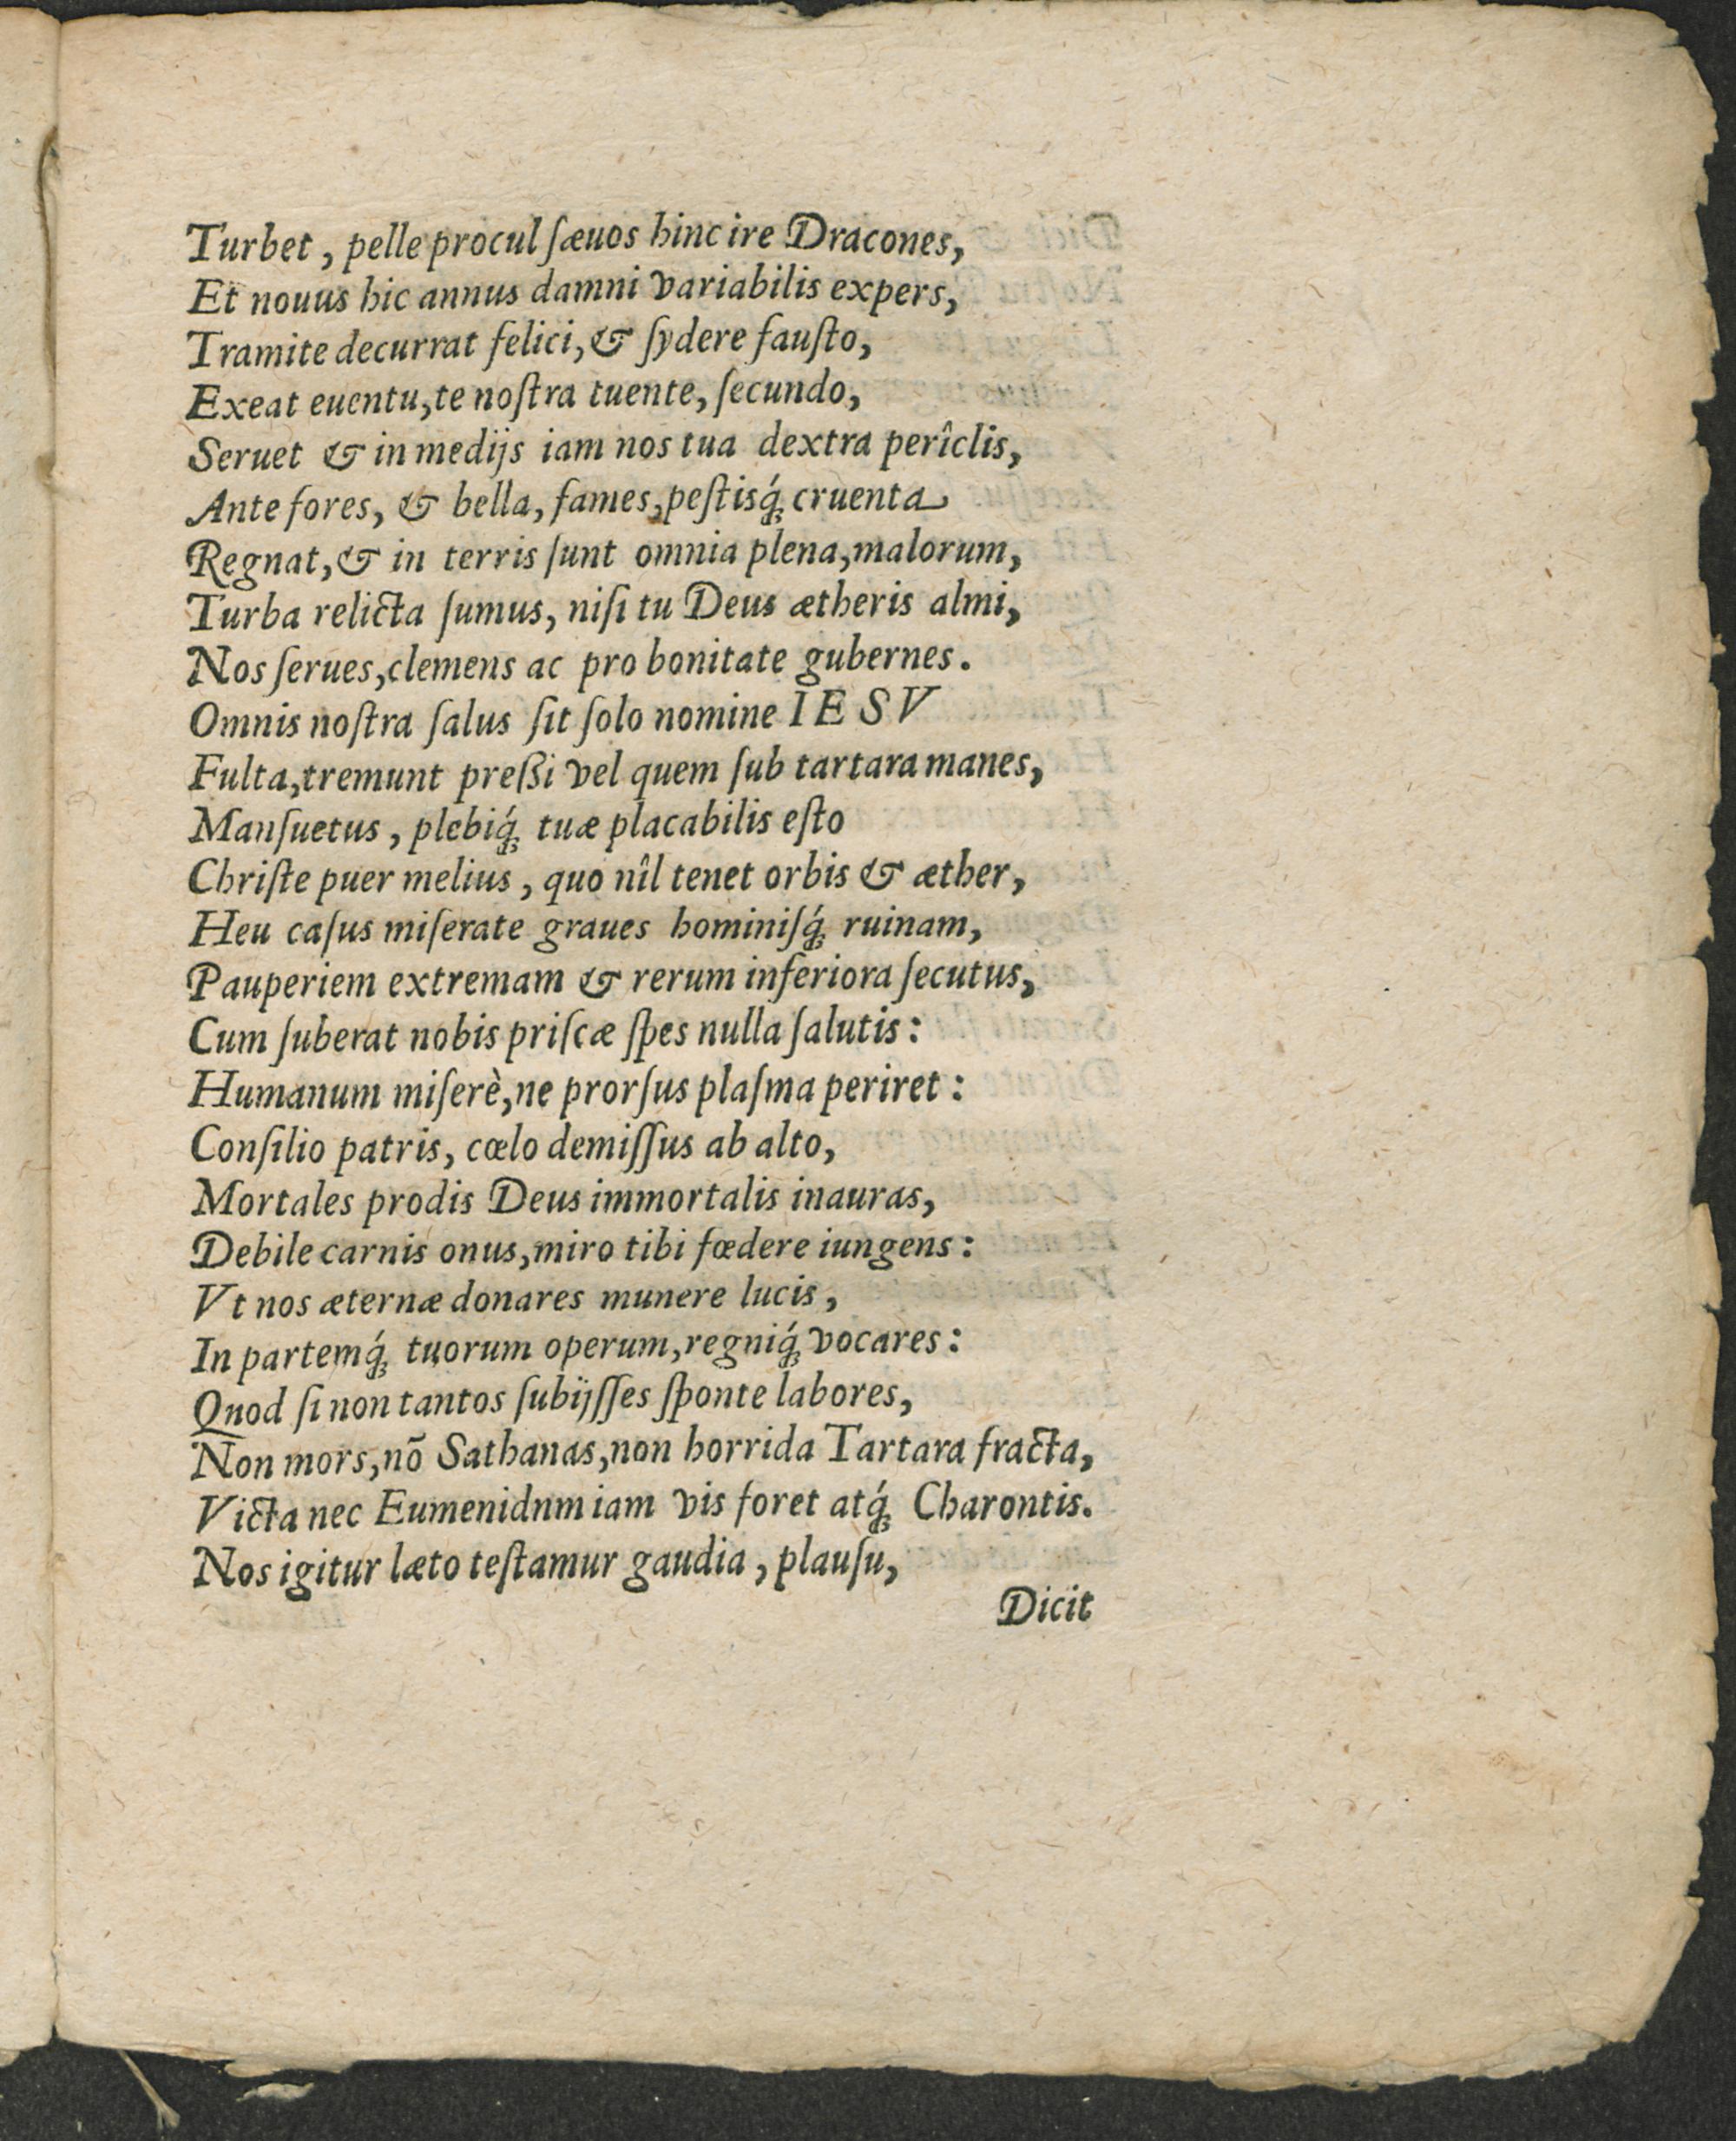 Turbet, pelle procul ſæuos hinc ire Dracones,
Et nouus hic annus damni variabilis expers,
Tramite decurrat felici, & ſydere fauſto,
Exeat euentu, te noſtra tuente, ſecundo,
Seruet & in medijs iam nos tua dextra perîclis,
Ante fores, & bella, fames, peſtisq́; cruenta
Regnat, & in terris ſunt omnia plena, malorum,
Turba relicta ſumus, niſi tu Deus ætheris almi,
Nos ſerues, clemens ac pro bonitate gubernes.
Omnis noſtra ſalus ſit ſolo nomine IESV
Fulta, tremunt preßi vel quem ſub tartara manes,
Manſuetus, plebiq́; tuæ placabilis eſto
Chriſte puer melius, quo nîl tenet orbis & æther,
Heu caſus miſerate graues hominiſq́; ruinam,
Pauperiem extremam & rerum inferiora ſecutus,
Cum ſuberat nobis priſcæ ſpes nulla ſalutis:
Humanum miſerè, ne prorſus plaſma periret:
Conſilio patris, cœlo demiſſus ab alto,
Mortales prodis Deus immortalis in auras,
Debile carnis onus, miro tibi fœdere iungens:
Vt nos æternæ donares munere lucis,
In partemq́; tuorum operum, regniq́; vocares:
Quod ſi non tantos ſubijſſes ſponte labores,
Non mors, nõ Sathanas, non horrida Tartara fracta,
Victa nec Eumenidnm iam vis foret atq́; Charontis.
Nos igitur læto teſtamur gaudia, plauſu,
Dicit